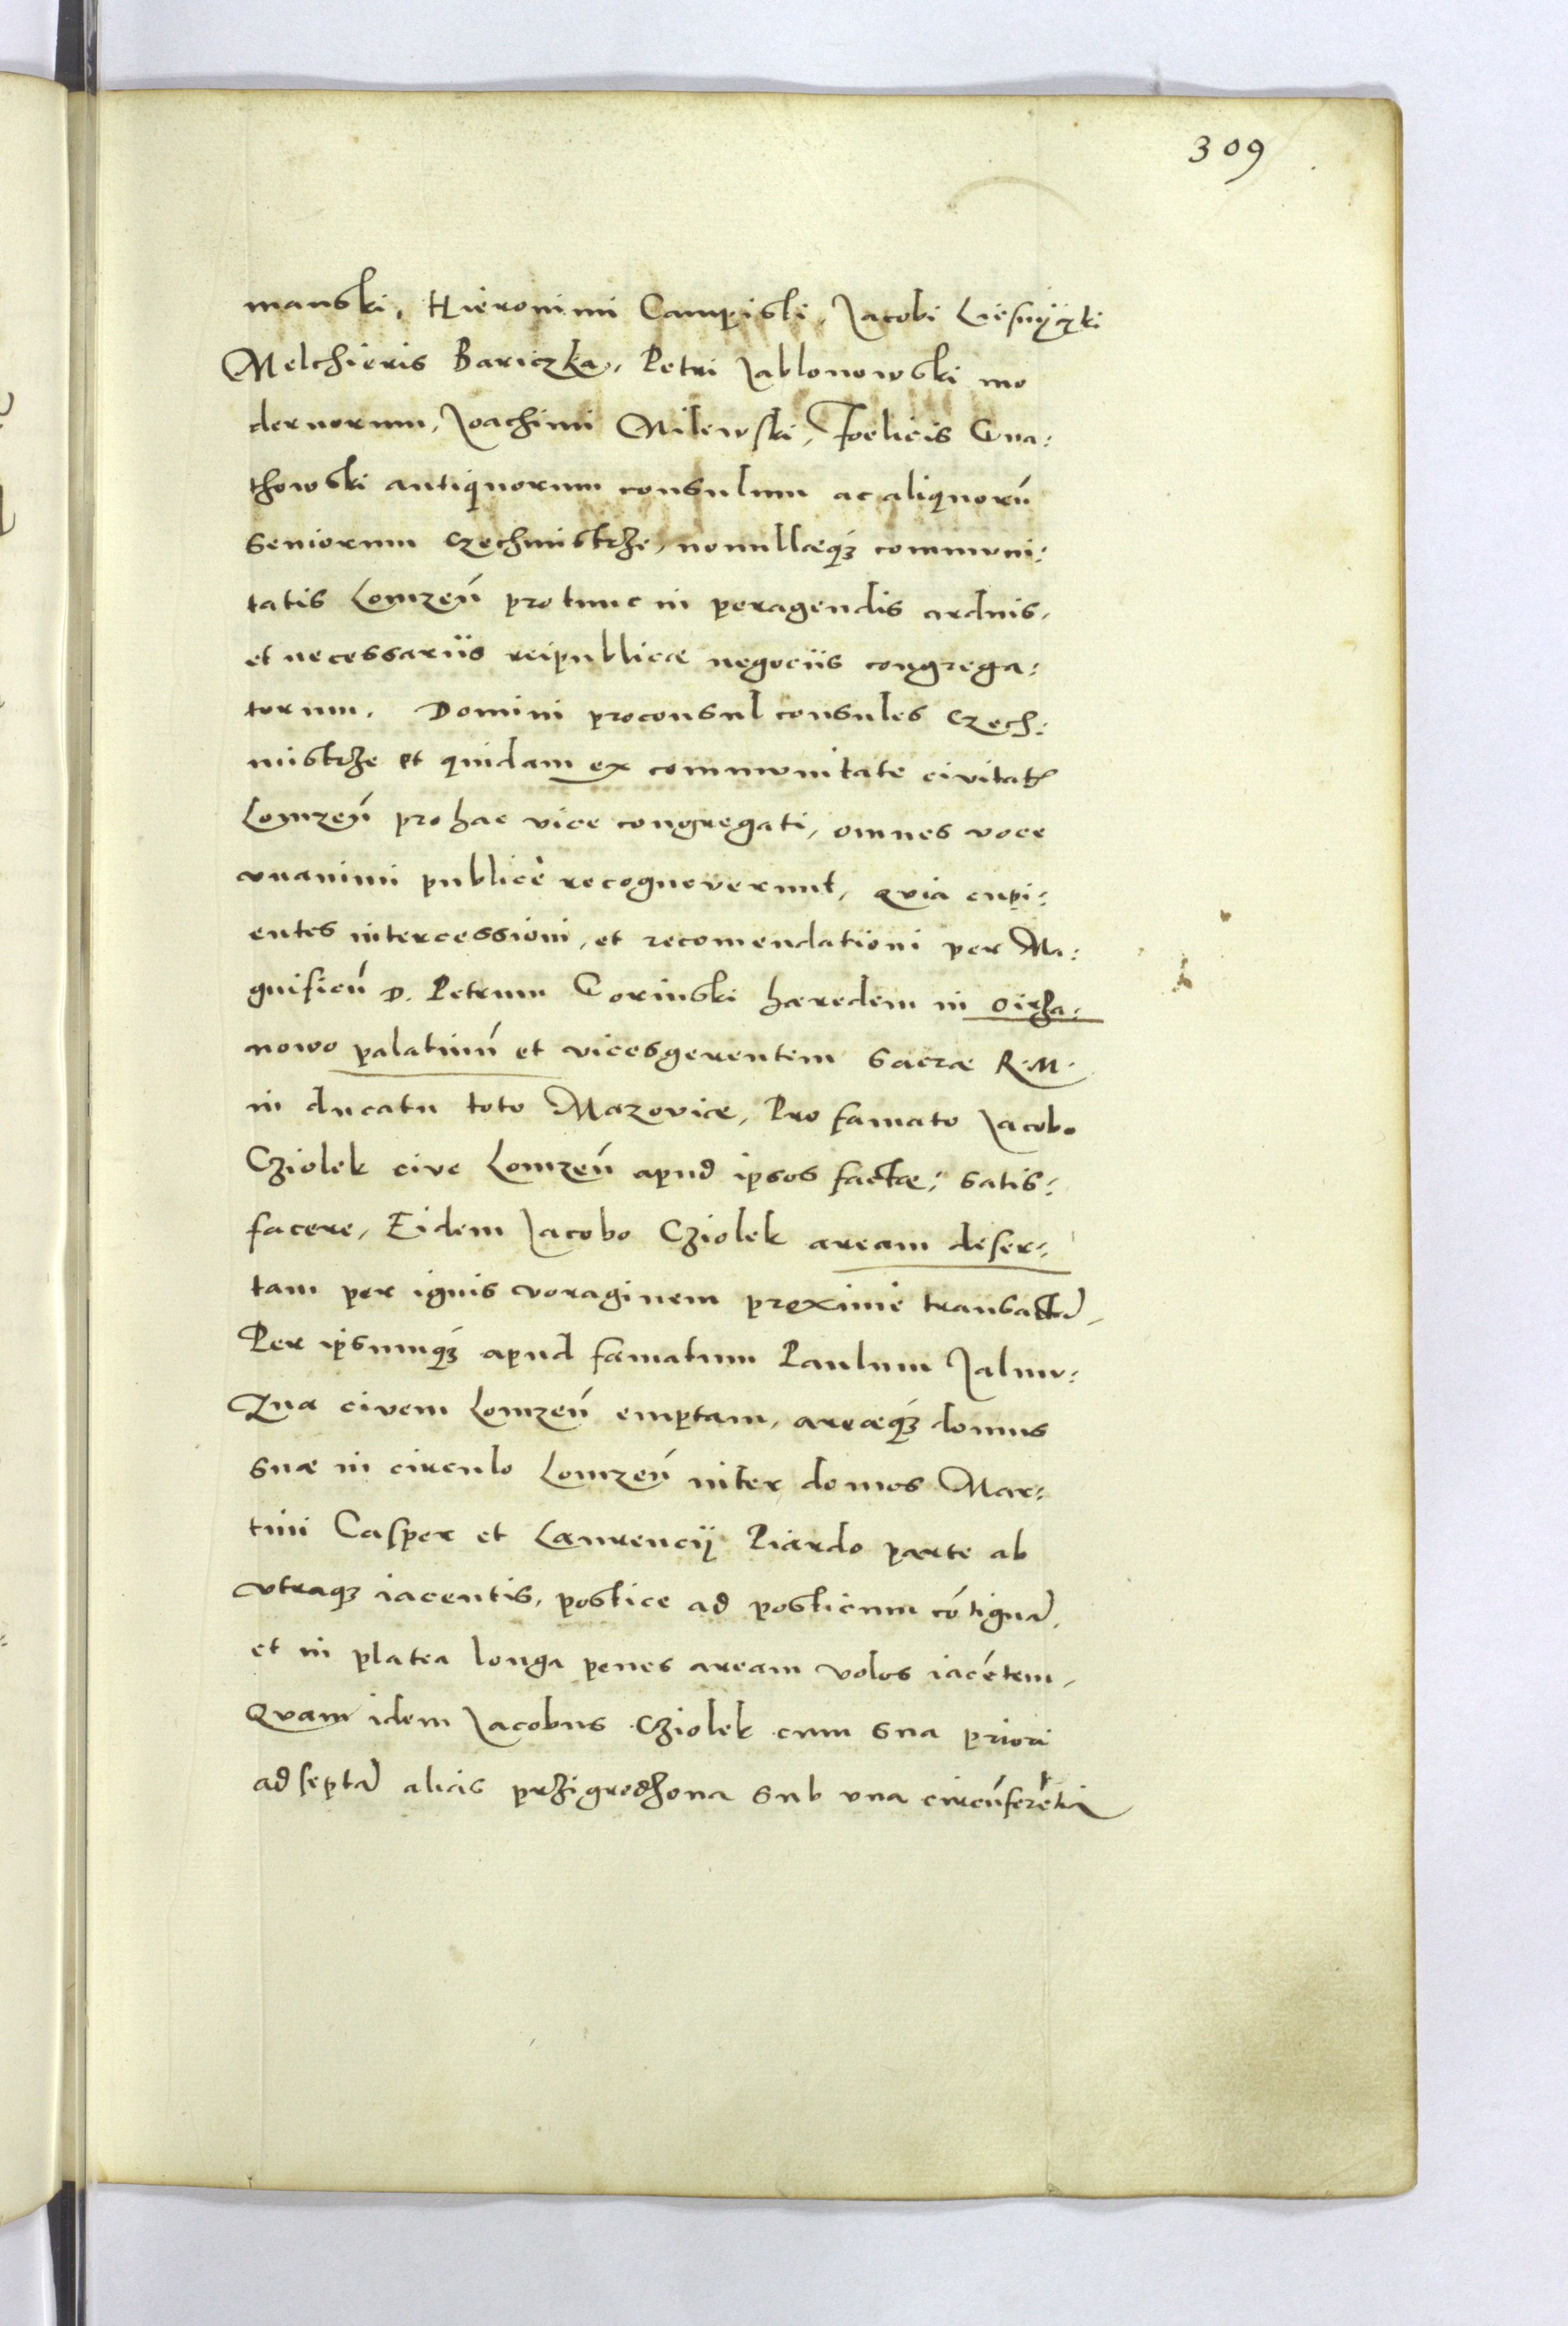 309
manski, Hieronimi Campisti, Jacobi Liesnÿczki
Melchieris Bariczka, Petri Jablonowski mo
dernorum, Joachimi Milewski, Foelicis Gna:
thowski antiquorum consulum ac aliquorū
seniorum Czechmistrze, nonullaeq₃ communi:
tatis Lomzeń protunc in peragendis arduis,
et necessariis reipublicae negociis congrega:
torum. Domini proconsul consules Czech:
mistrze et quidam ex communitate civitatꝭ
Lomzeń pro hac vice congregati, omnes voce
vnanimi publicè recognoverunt, qvia cupi:
entes intercessioni, et recomendationi per Ma:
gnificū D. Petrum Gorinski haeredem in Oirza:
nowo palatinū et vicesgerentem sacrae R. M.
in ducatu toto Mazoviae, Pro famato Jacobo
Cziolek cive Lomzeń apud ipsos factae: satis:
facere, Eidem Jacobo Cziolek aream deser:
tam per ignis voraginem proxime transactā,
Per ipsumq₃ apud famatum Paulum Jalmu:
zna civem Lomzeń emptam, areaeq₃ domus
suae in circulo Lomzeń inter domos Mar:
tini Casper et Laurencij Piardo parte ab
vtraq₃ iacentis, postice ad posticum cōtiguā,
et in platea longa penes aream volos iacētem,
Qvam idem Jacobus Cziolek cum sua priori
ad septā alias przigrodzona sub vna circūferētia